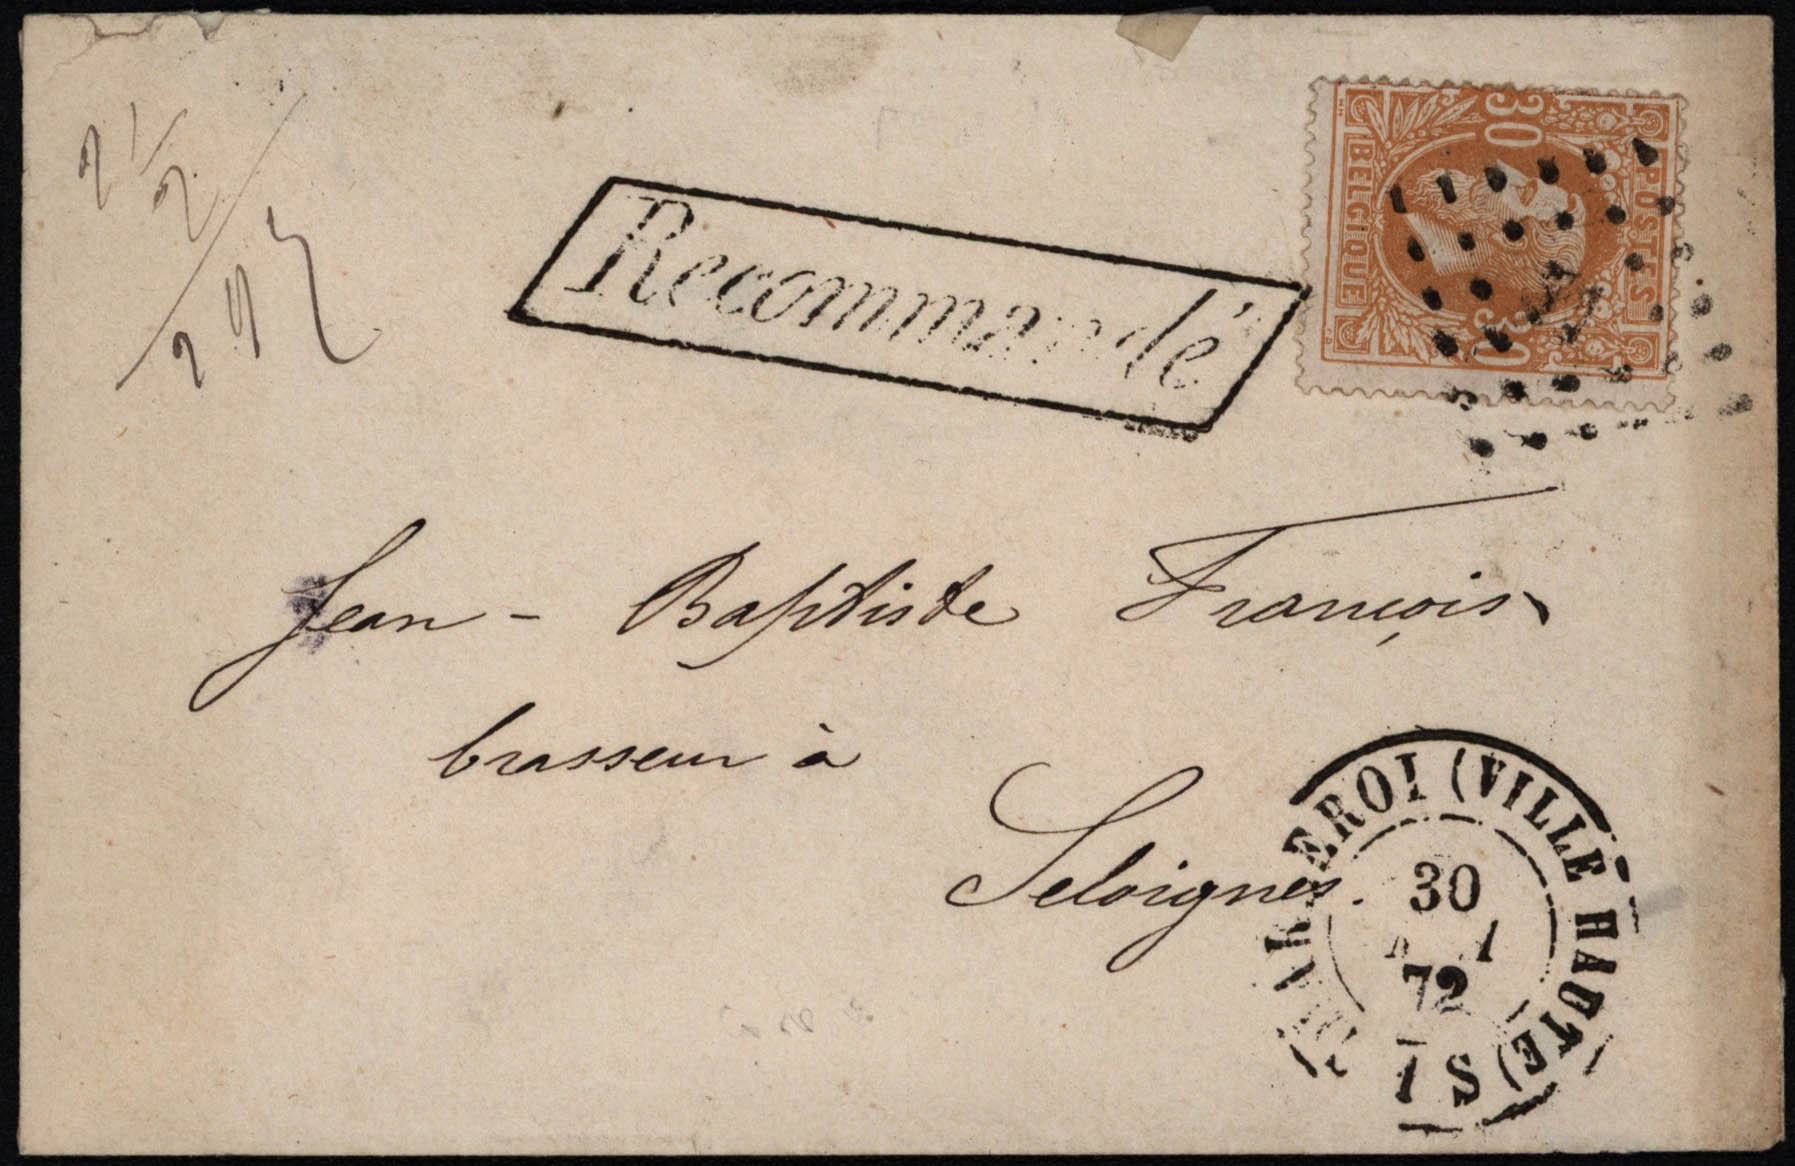 2 1/2
293
Recommandé
30 30
POSTES
BELGIQUE
Jean-Baptiste François
brasseur à
Seloignes.
CHARLEROI (VILLE HAUTE)
30
72
7 S